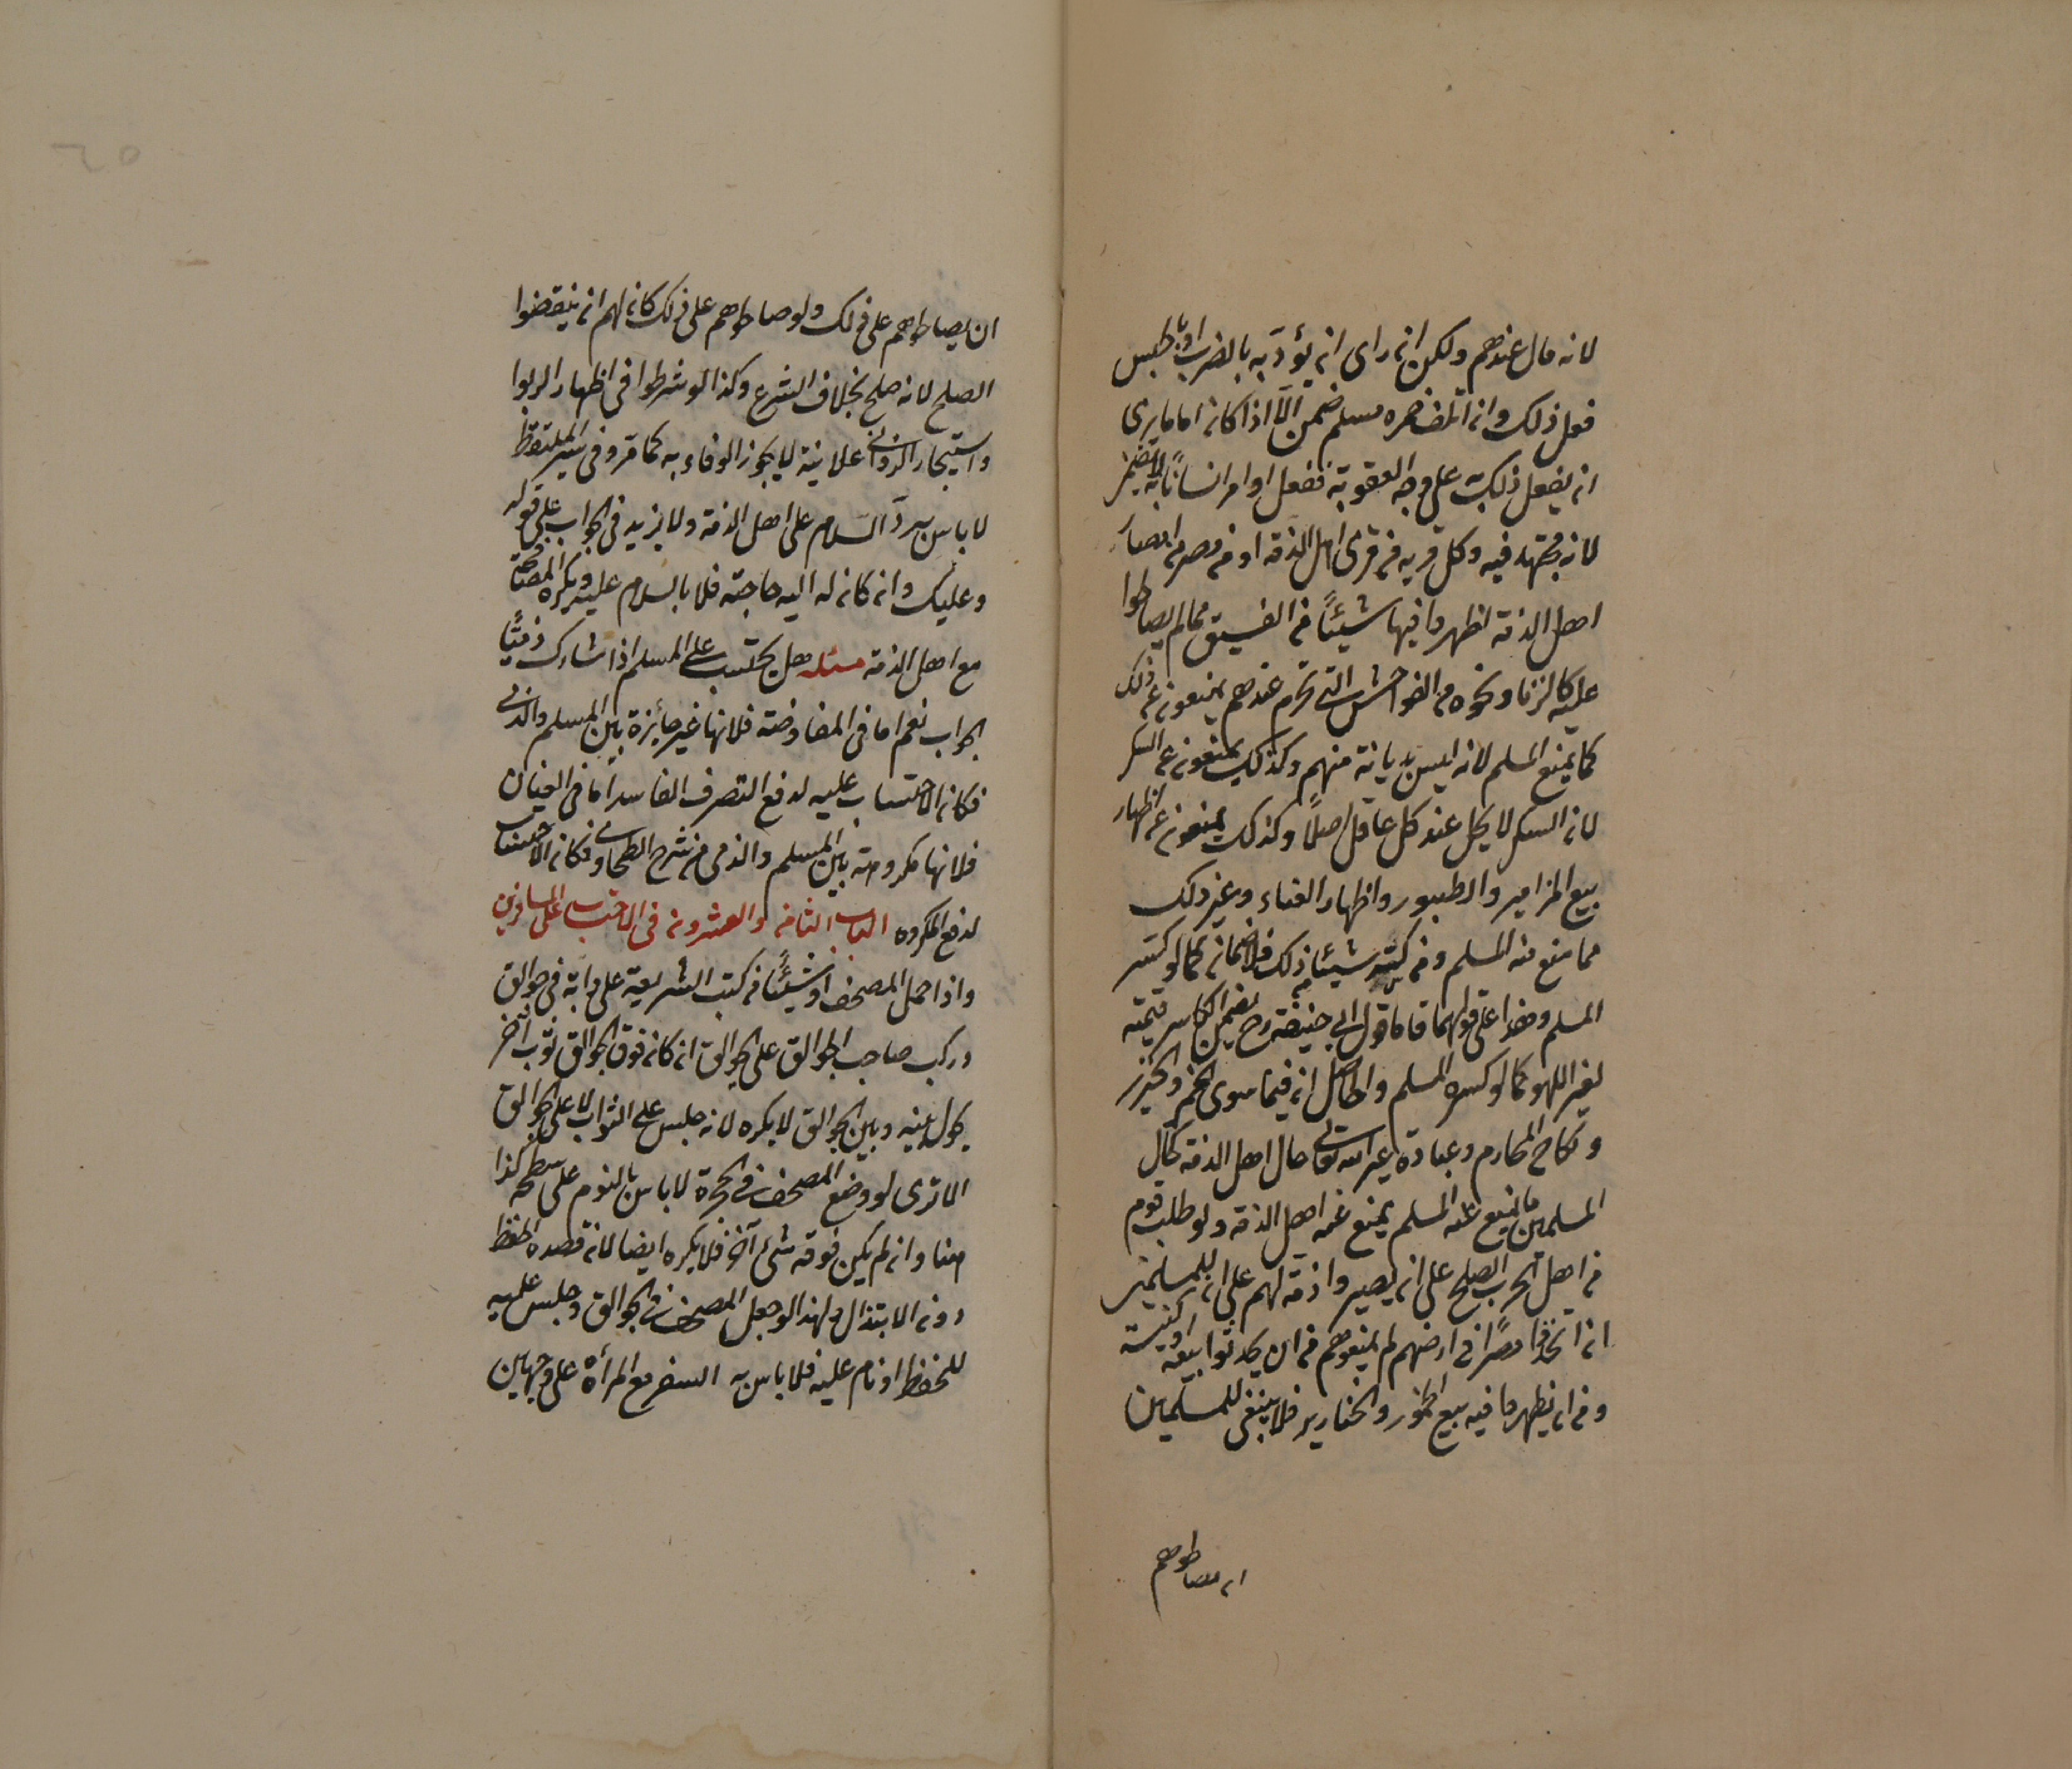 لانه مال عندهم ولكن ان راى ان يؤدبه بالضرب او بالحبس
فعل ذلك وان اتلف خمره مسلم ضمن الا اذا كان اماما يرى
ان يفعل ذلك به على وجه العقوبة ففعل او امر انسانا به لا يضمن
لانه مجتهد فيه وكل قريه من قرى اهل الذمة او من مصر من امصار
اهل الذمة اظهروا فيها شيئاً من الفسق مما لم يصالحوا
عليه كالزنا ونحوه من الفواحش التى تحرم عندهم يمنعون عن ذلك
كما يمنع المسلم لانه ليس بديانة منهم وكذلك يمنعون عن السكر
لان السكر لا يحل عند كل عاقل اصلاً وكذلك يمنعون عن اظهار
بيع المزامير والطبور واظهار الغناء وغير ذلك
مما منع منه المسلم ومن كسر شيئا من ذلك فلا ضمان كما لو كسر
المسلم وهذا على قولهما فاما قول ابى حنيفة رح يضمن الكاسر قيمته
لغير اللهو كما لو كسره المسلم والحاصل ان فيما سوى الخمر والخنزير
ونكاح المحارم وعبادة غير الله تعالى حال اهل الذمة كحال
المسلمين ما يمنع عنه المسلم يمنع عنه اهل الذمة ولو طلب قوم
من اهل الحرب الصلح على ان يصيروا ذمة لهم على ان للمسلمين
ان اتخذوا مصرا فى ارضهم لم يمنعوهم من ان يحدثوا بيعه او كنيسة
ومن ان يظهروا فيه بيع الخمور والخنازير فلا ينبغى للمسلمين
ان يصالحوهم
ان يصالحوهم على ذلك ولو صالحوهم على ذلك كان لهم ان ينقضوا
الصلح لانه صلح بخلاف الشرع وكذا لو شرطوا فى اظهار الربوا
واستيجار الزوانى علانية لا يجوز الوفاء به كما مر وفى سير الملتقط
لا باس برد السلام على اهل الذمة ولا يزيد فى الجواب على قوله
وعليك وان كان له اليه حاجة فلا بالسلام عليه ويكره المصافحة
مع اهل الذمة مسئله هل يحتسب على المسلم اذا شارك ذميًّا
الجواب نعم اما فى المفاوضة فلانها غير جائزة بين المسلم والذمى
فكان الاحتساب عليه لدفع التصرف الفاسد اما فى العنان
فلانها مكروهة بين المسلم والذمى من شرح الطحاوى فكان الاحتساب
لدفع المكروه الباب الثامن والعشرون فى الاحتساب على المسافرين
واذا حمل المصحف او شيئًا من كتب الشريعة على دابة فى جوالق
وركب صاحب الجوالق على الجوالق ان كان فوق الجوالق ثوب آخر
يحول بينه وبين الجوالق لا يكره لانه جلس على الثواب لا على الجوالق
الا ترى لو وضع المصحف فى الحجرة لا باس بالنوم على سطحه كذا
هنا وان لم يكن فوقه شئ آخر فلا يكره ايضا لان قصده الحفظ
دون الابتذال ولهذا لو جعل المصحف فى الجوالق وجلس عليه
للحفظ او نام عليه فلا باس به السفر مع المرأة على وجهين